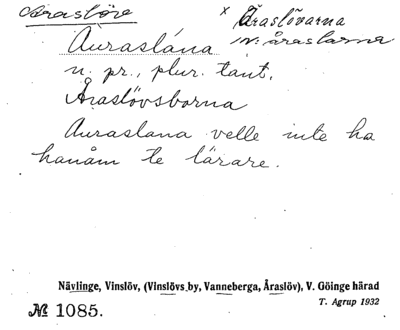 Araslöv
x Åraslövarna
Auraslána
n. pr., plur. tant.
Åraslövsborna
Auraslana velle inte ha
hanåm te lärare.
Nävlinge, Vinslöv, (Vinslövs by, Vanneberga, Åraslöv), V. Göinge härad
T. Agrup 1932
№ 1085.